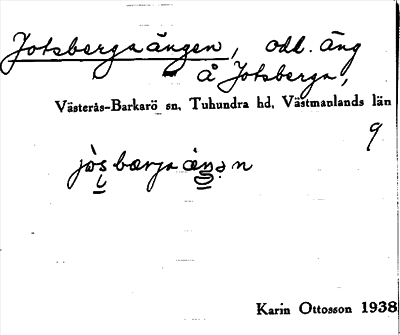 Jotsbergaängen, odl. äng
å Jotsberga,
Västerås-Barkarö sn, Tuhundra hd, Västmanlands län
9
Karin Ottosson 1938